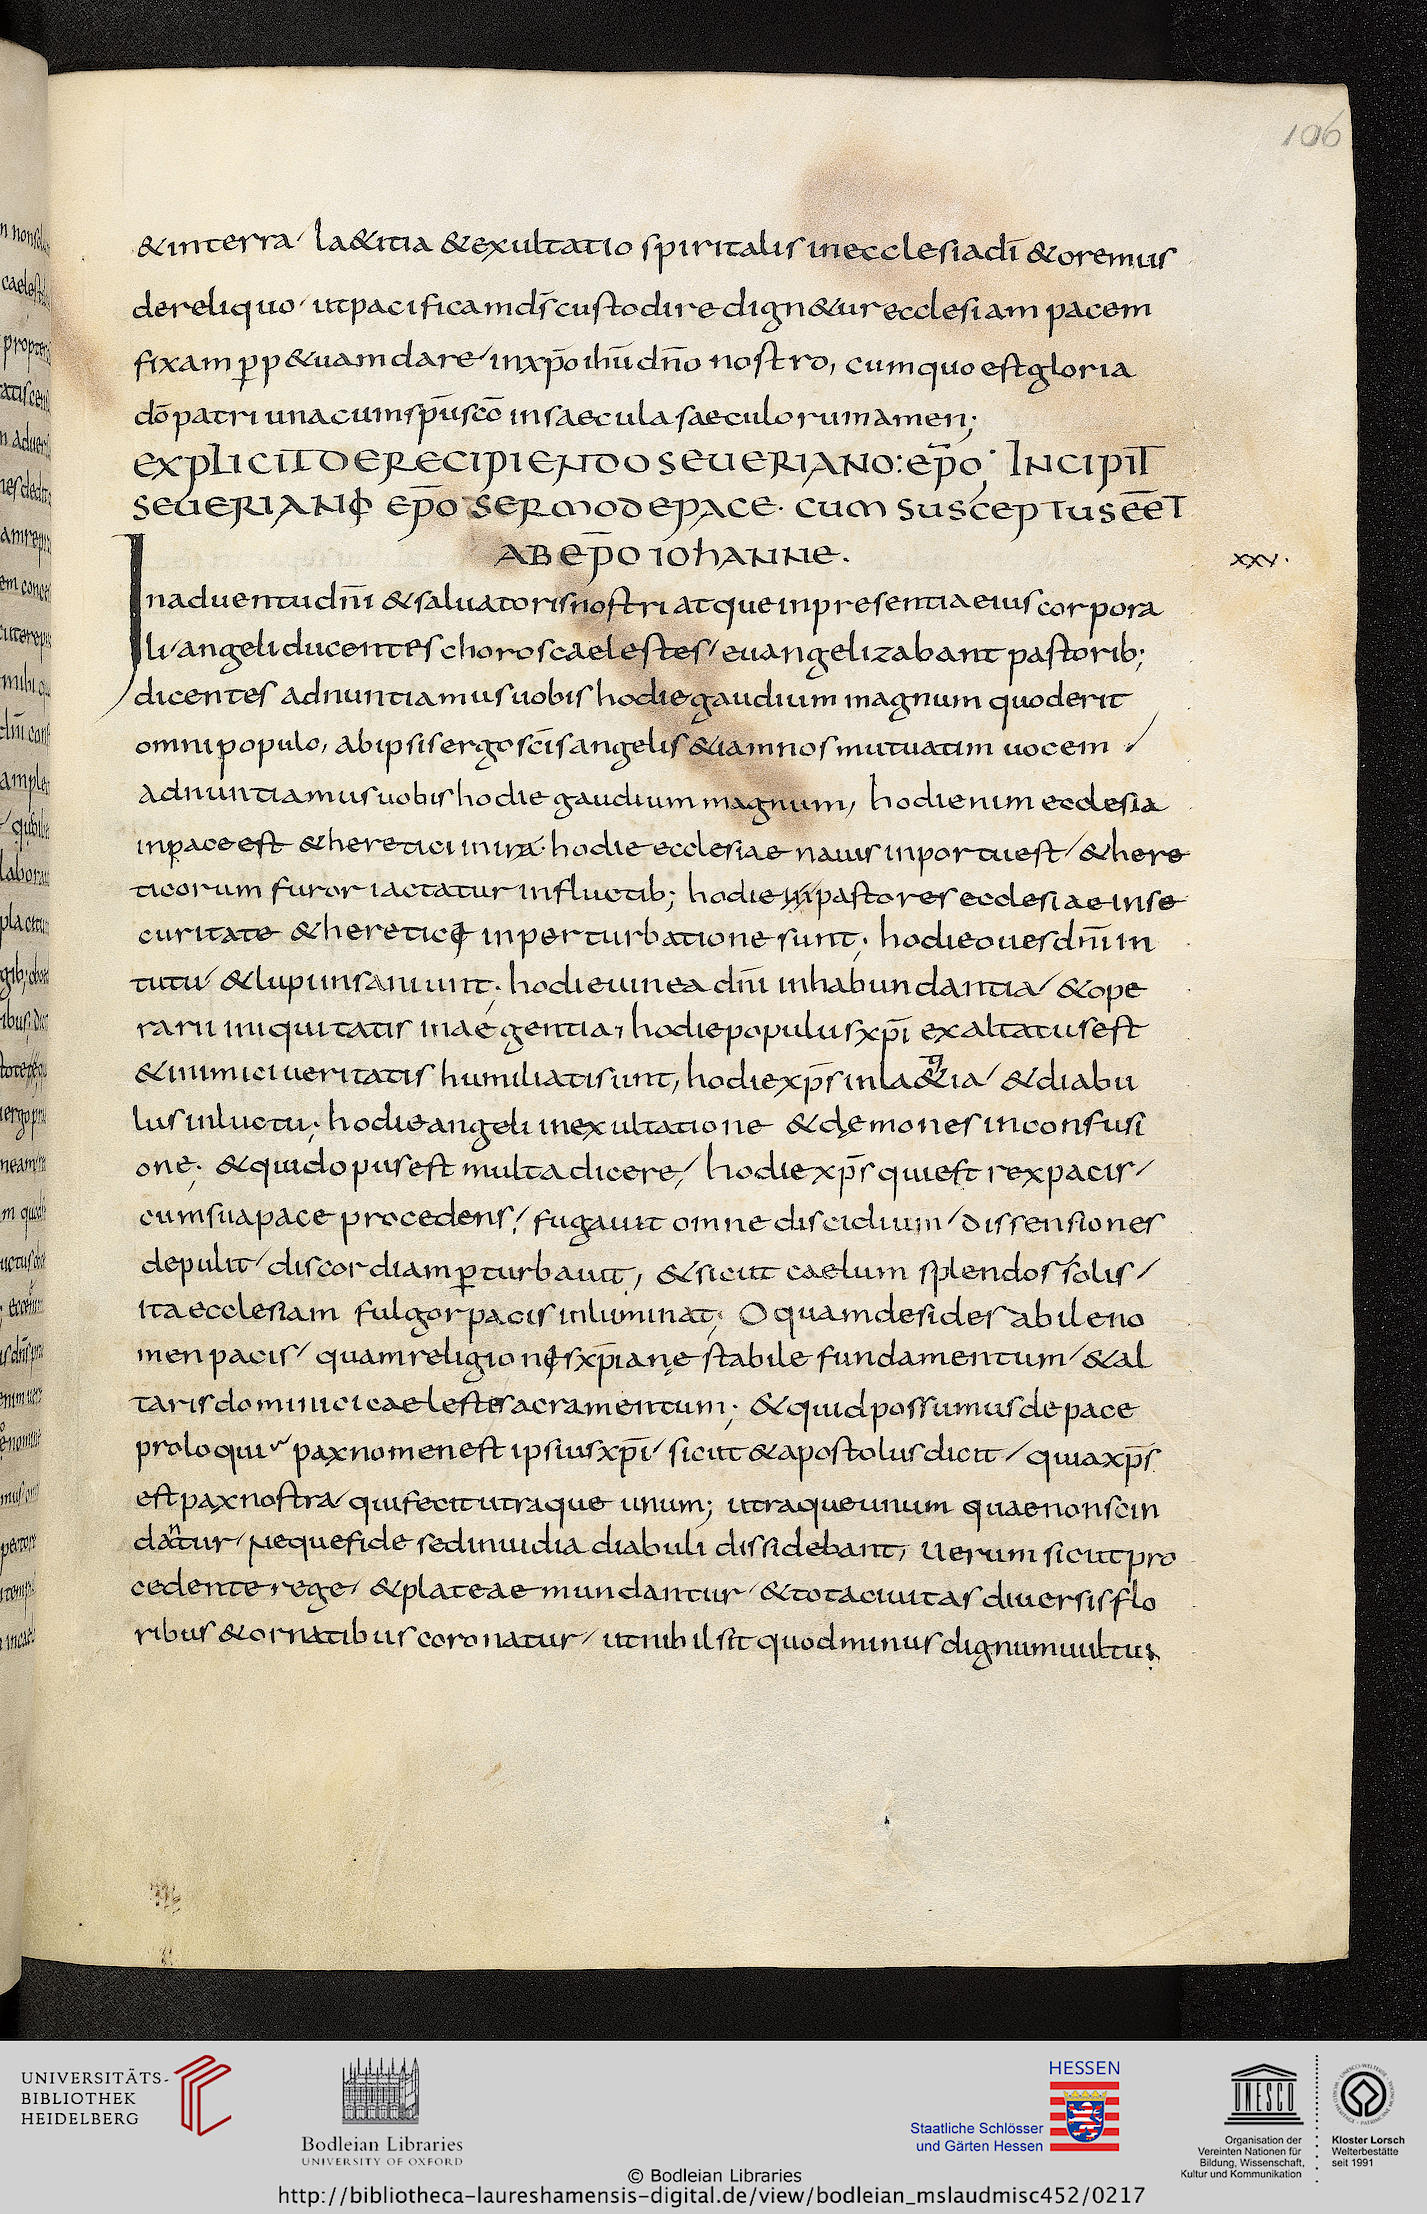 106
&interra / la&itia &exultatio spiritalis inecclesiadī &oremus
dereliquo / utpacificamds̄custodiredign&urecclesiam pacem
fixam p̱p&uamdare / inxp̄oihūdn̄o nostro, cumquo estgloria
dōpatri unacumsp̄uscō insaeculasaeculorumamen;
EXPLICIT DERECIPIENDO SEUERIANO: EP̄O; INCIPIT
SEUERIANI EP̄O SERMODEPACE · CUM SUSCEPTUSEĒT
AB EP̄O IOHANNE.
XXV·
Inaduentudn̄i &saluatorisnostri atqueinpresentiaeius corpora
li / angeliducentes choroscaelestes / euangelizabant pastorib;
dicentes adnuntiamusuobis hodiegaudium magnum quoderit
omnipopulo, abipsisergosc̄isangelis &iamnosmutuatim uocem /
adnuntiamusuobishodie gaudiummagnum, hodienim ecclesia
inpaceest &heretici inira · hodie ecclesiae nauis inportuest / &here
ticorum furor iactatur influctib; hodie pastores ecclesiae inse
curitate &heretici inperturbatione sunt; hodieouesdn̄i in
tutu / &lupi insaniunt; hodieuinea dn̄i inhabundantia / &ope
rarii iniquitatis inaegentia, hodiepopulusxp̄i exaltatusest
&inimiciueritatis humiliatisunt, hodiexp̄s inla&ia / &diabu
lusinluctu; hodieangeli inexultatione &dęmones inconfusi
one; &quidopusest multadicere / hodiexp̄s quiest rexpacis /
cumsuapace procedens / fugauit omne discidium / dissensiones
depulit / discordiamp̱turbauit, &sicut caelum splendor solis /
itaecclesiam fulgorpacisinluminat; Oquamdesiderabileno
men pacis / quamreligionisxp̄ianę stabile fundamentum / &al
tarisdominici caelestesacramentum; &quidpossumusdepace
proloqui paxnomenest ipsiusxp̄i / sicut &apostolusdicit / quiaxp̄s
estpaxnostra / quifecitutraque unum; utraqueunum quaenonscin
dantur / nequefide sedinuidia diabuli dissidebant, Uerumsicutpro
cedente rege / &plateae mundantur / &totaciuitas diuersisflo
ribus &ornatibuscoronatur / utnihilsit quodminusdignumuultui
UNIVERSITÄTS-
BIBLIOTHEK
HEIDELBERG
Bodleian Libraries
UNIVERSITY OF OXFORD
HESSEN
Staatliche Schlösser
und Gärten Hessen
UNESCO
Organisation der
Vereinten Nationen für
Bildung, Wissenschaft,
Kultur und Kommunikation
Kloster Lorsch
Welterbestätte
seit 1991
© Bodleian Libraries
http://bibliotheca-laureshamensis-digital.de/view/bodleian_mslaudmisc452/0217